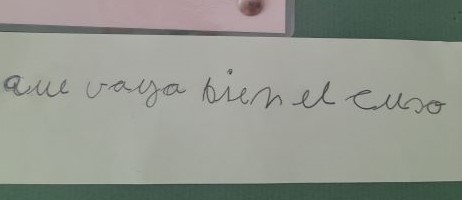 que vaya bien el cuso